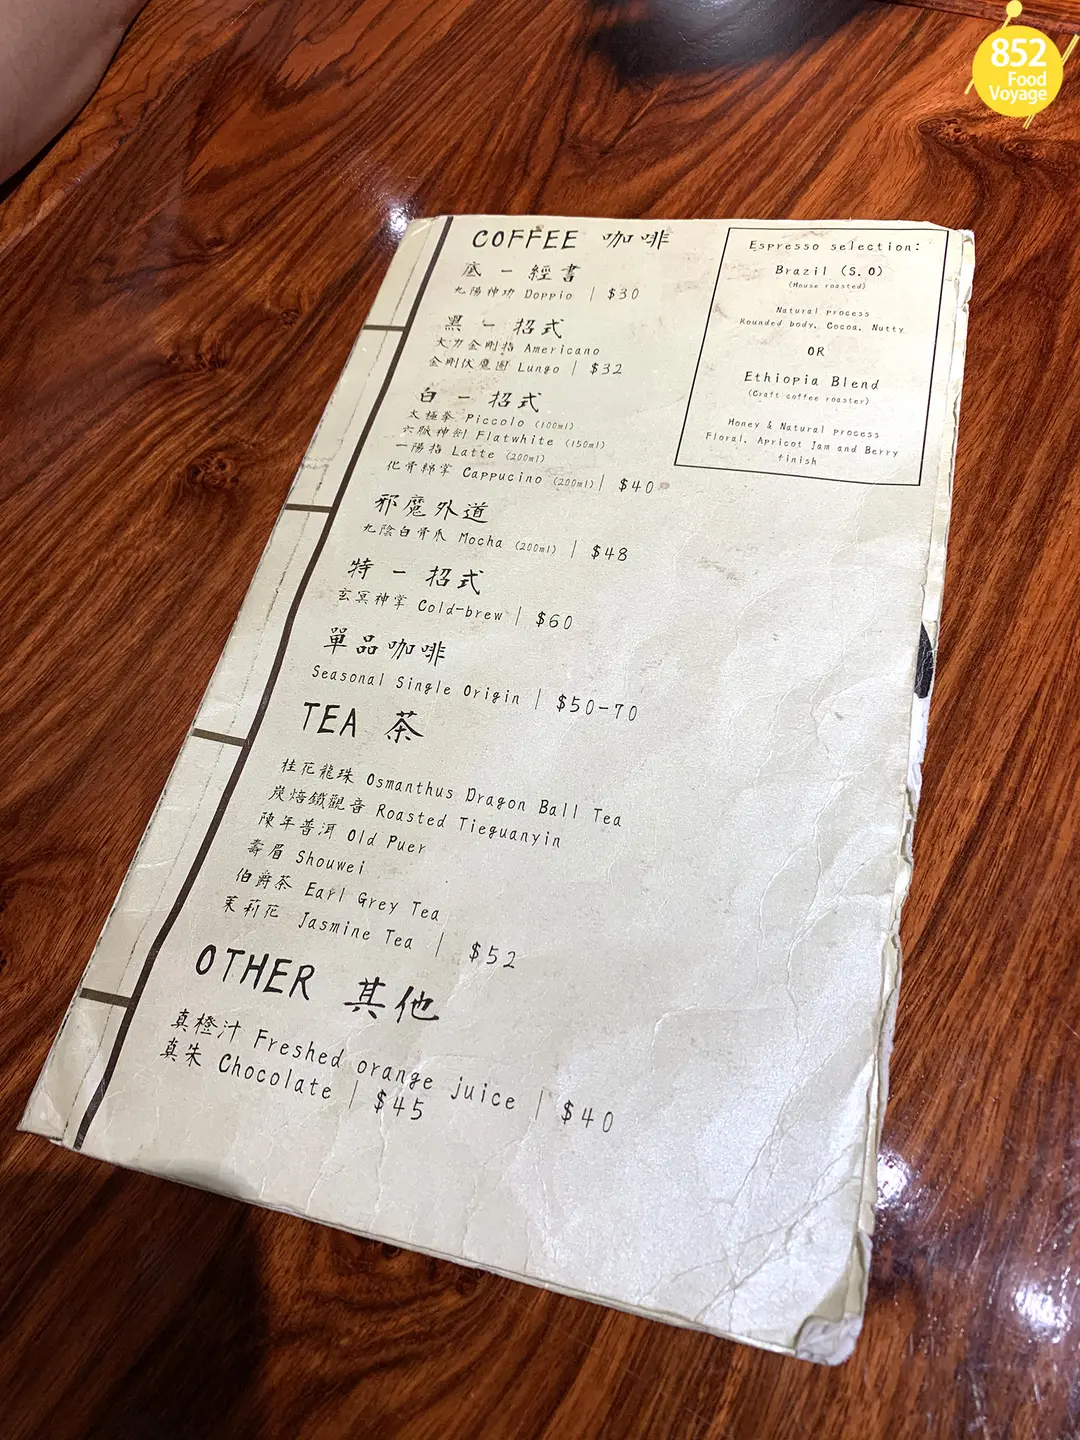 852
Food
Voyage
COFFEE 咖啡
底 — 經書
九陽神功 Doppio | $30
黑 — 招式
大力金剛指 Americano
金剛伏魔圈 Lungo | $32
白 — 招式
太極拳 Piccolo (100ml)
六脈神剣 Flatwhite (150ml)
一陽指 Latte (200ml)
化骨綿掌 Cappucino (200ml) | $40
邪魔外道
九陰白骨爪 Mocha (200ml) | $48
特 — 招式
玄冥神掌 Cold-brew | $60
單品咖啡
Seasonal Single Origin | $50-70
TEA 茶
桂花龍珠 Osmanthus Dragon Ball Tea
炭焙鐵觀音 Roasted Tieguanyin
陳年普洱 Old Puer
壽眉 Shouwei
伯爵茶 Earl Grey Tea
茉莉花 Jasmine Tea | $52
OTHER 其他
真橙汁 Freshed orange juice | $40
真朱 Chocolate | $45
Espresso selection:
Brazil (S.O)
(House roasted)
Natural process
Rounded body, Cocoa, Nutty
OR
Ethiopia Blend
(Craft coffee roaster)
Honey & Natural process
Floral, Apricot Jam and Berry
finish